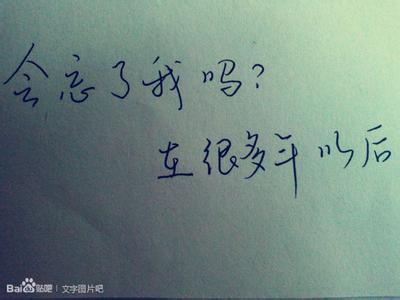 会忘了我吗?
在很多年以后
Bai贴吧 | 文字图片吧